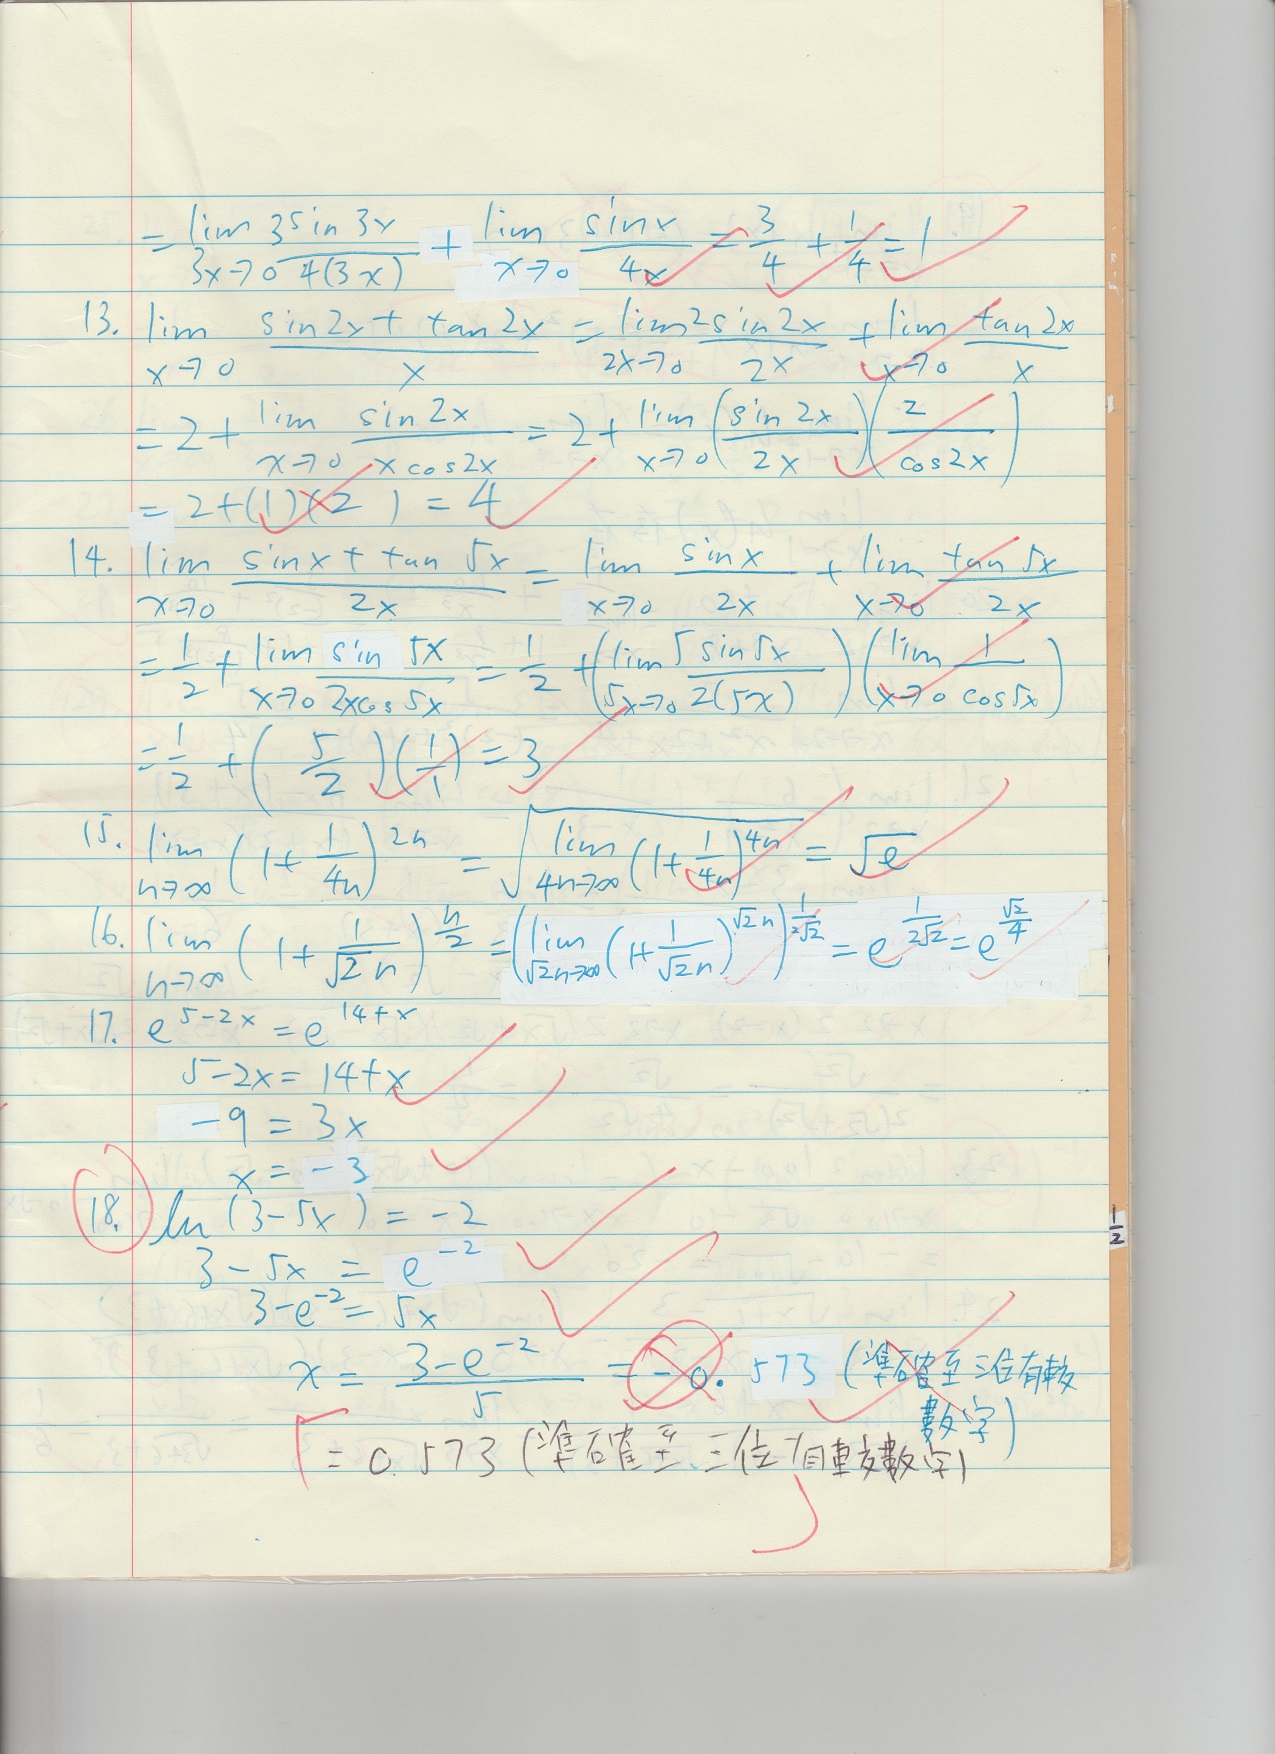 = lim 3x→0 3 sin 3x / 4(3x) + lim x→0 sin x / 4x = 3/4 + 1/4 = 1
13. lim x→0 (sin 2x + tan 2x) / x = lim 2x→0 2 sin 2x / 2x + lim x→0 tan 2x / x
= 2 + lim x→0 sin 2x / (x cos 2x) = 2 + lim x→0 (sin 2x / 2x)(2 / cos 2x)
= 2 + (1)(2) = 4
14. lim x→0 (sin x + tan 5x) / 2x = lim x→0 sin x / 2x + lim x→0 tan 5x / 2x
= 1/2 + lim x→0 sin 5x / (2x cos 5x) = 1/2 + (lim 5x→0 5 sin 5x / 2(5x)) (lim x→0 1 / cos 5x)
= 1/2 + (5/2)(1/1) = 3
15. lim n→∞ (1 + 1/4n)^2n = √(lim 4n→∞ (1 + 1/4n)^4n) = √e
16. lim n→∞ (1 + 1/(√2 n))^(n/2) = (lim √2n→∞ (1 + 1/(√2 n))^(√2 n))^(1/(2√2)) = e^(1/(2√2)) = e^(√2/4)
17. e^(5-2x) = e^(14+x)
5-2x = 14+x
-9 = 3x
x = -3
18. ln (3-5x) = -2
3-5x = e^-2
3-e^-2 = 5x
x = (3-e^-2) / 5 = -0.573 (準確至三位有效
數字)
= 0.573 (準確至三位有效數字)
1/2